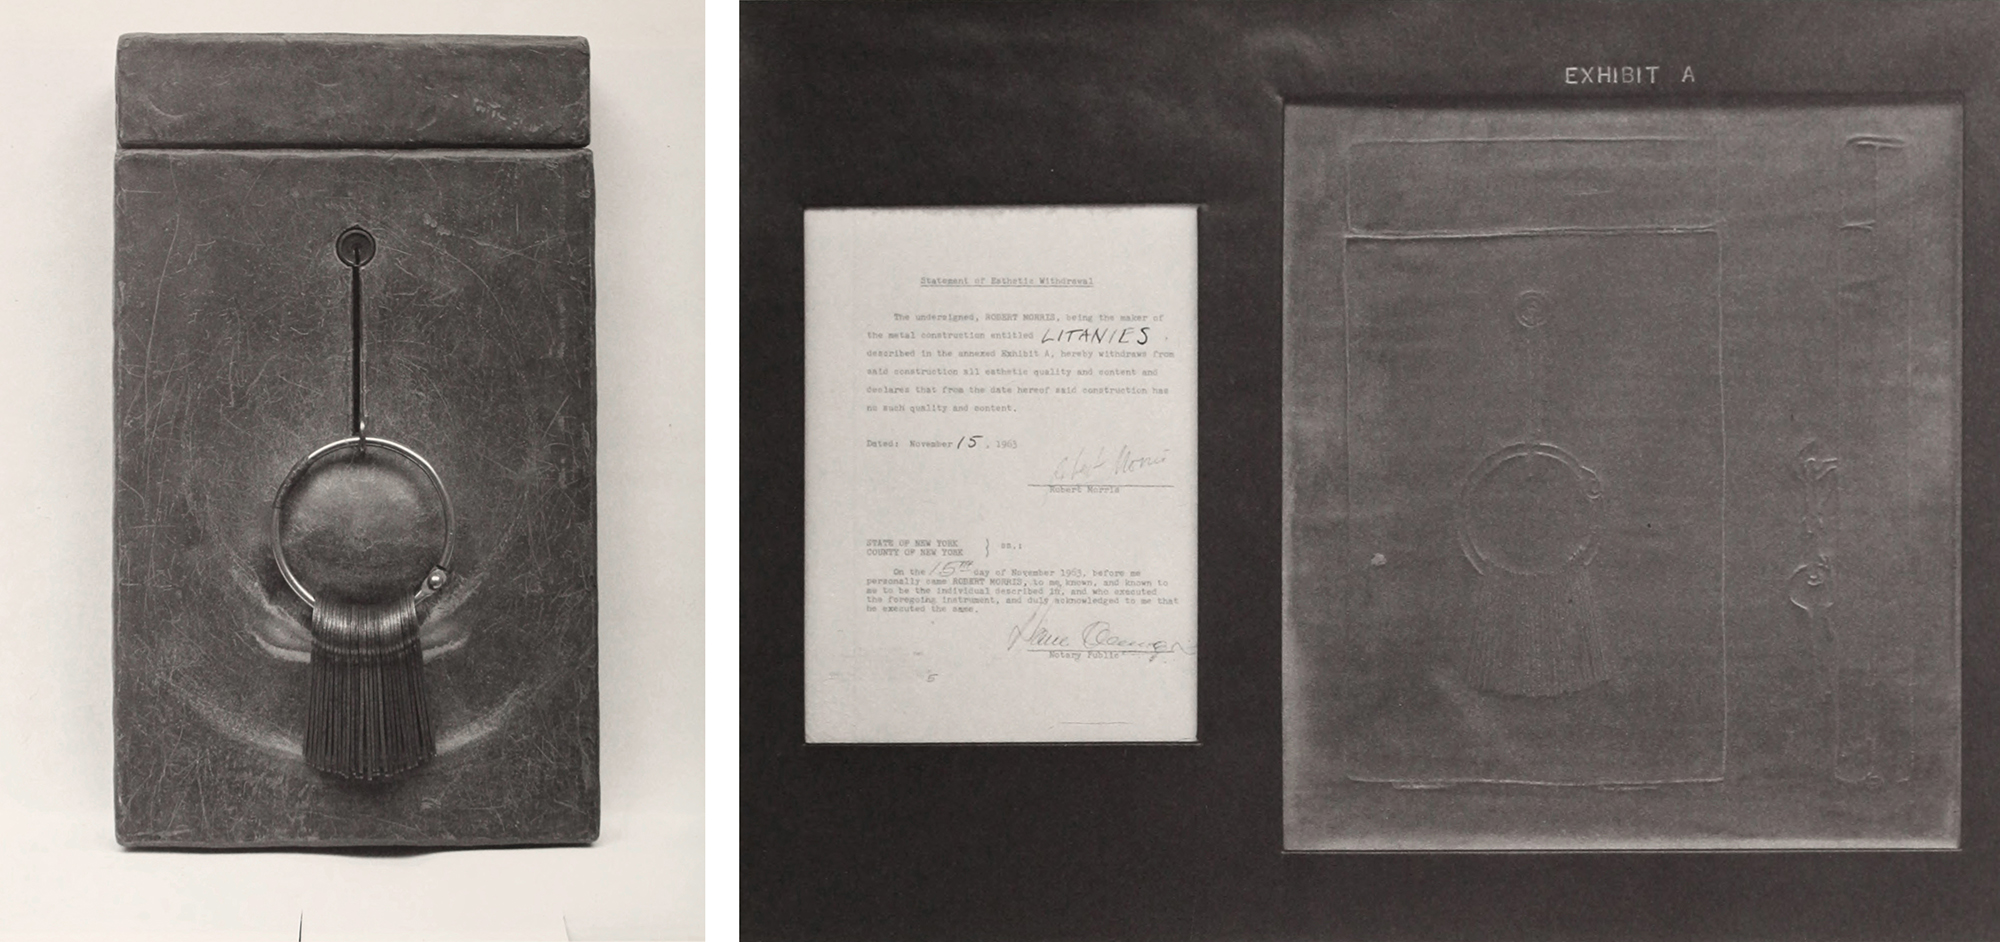 EXHIBIT A
Statement of Esthetic Withdrawal
The undersigned, ROBERT MORRIS, being the maker of
the metal construction entitled LITANIES ,
described in the annexed Exhibit A, hereby withdraws from
said construction all esthetic quality and content and
declares that from the date hereof said construction has
no such quality and content.
Dated: November 15, 1963
Robert Morris
Robert Morris
STATE OF NEW YORK
COUNTY OF NEW YORK } ss.:
On the 15th day of November 1963, before me
personally came ROBERT MORRIS, to me known, and known to
me to be the individual described in, and who executed
the foregoing instrument, and duly acknowledged to me that
he executed the same.
Notary Public